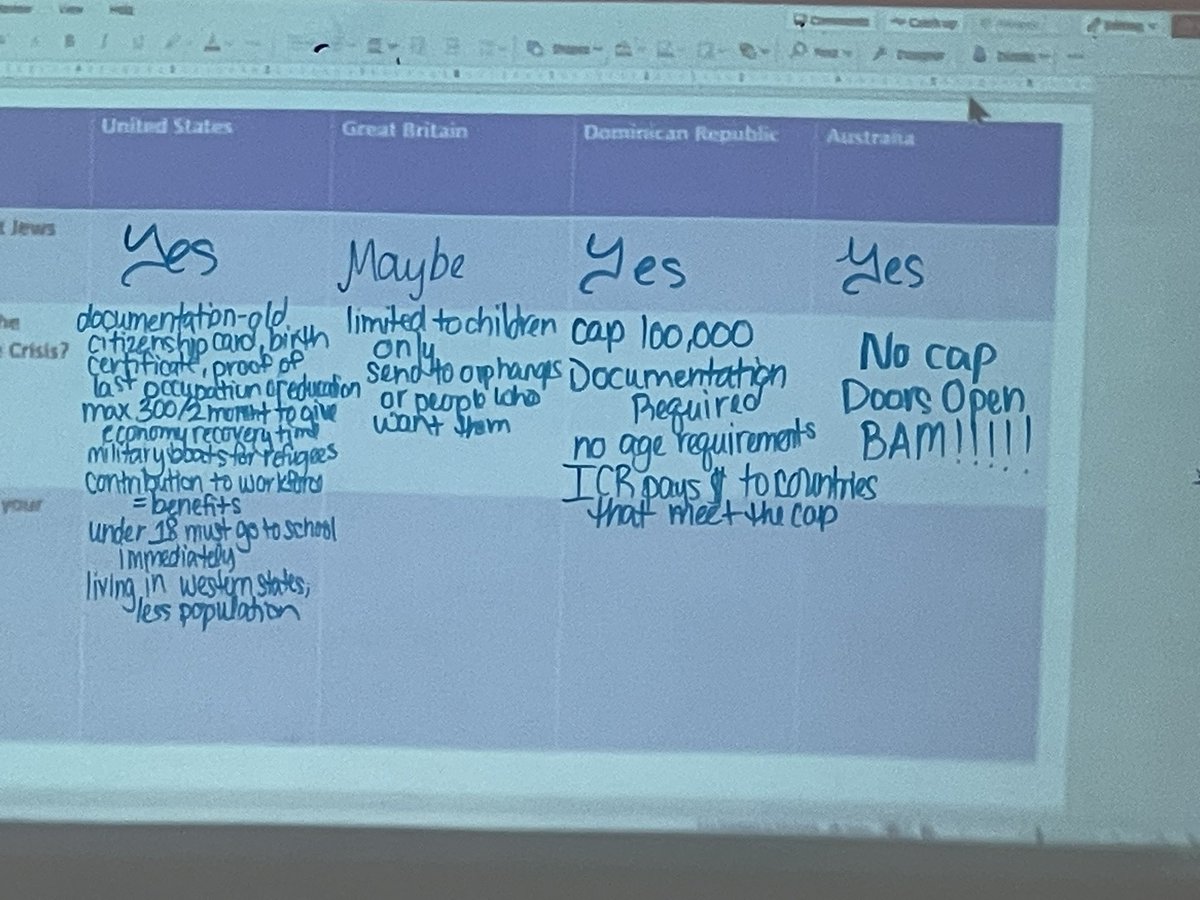 View Help
B I U
United States
Great Britain
Dominican Republic
Australia
t Jews
Yes
Maybe
Yes
Yes
he
Crisis?
documentation-old
citizenship card, birth
certificate, proof of
last occupation of education
max 300/2 month to give
economy recovery time
military boats for refugees
contribution to workforce
= benefits
under 18 must go to school
immediately
living in western states,
less population
limited to children
only
send to orphanges
or people who
want them
cap 100,000
Documentation
Required
no age requirements
ICR pays $ to countries
that meet the cap
No cap
Doors Open
BAM!!!!!
your